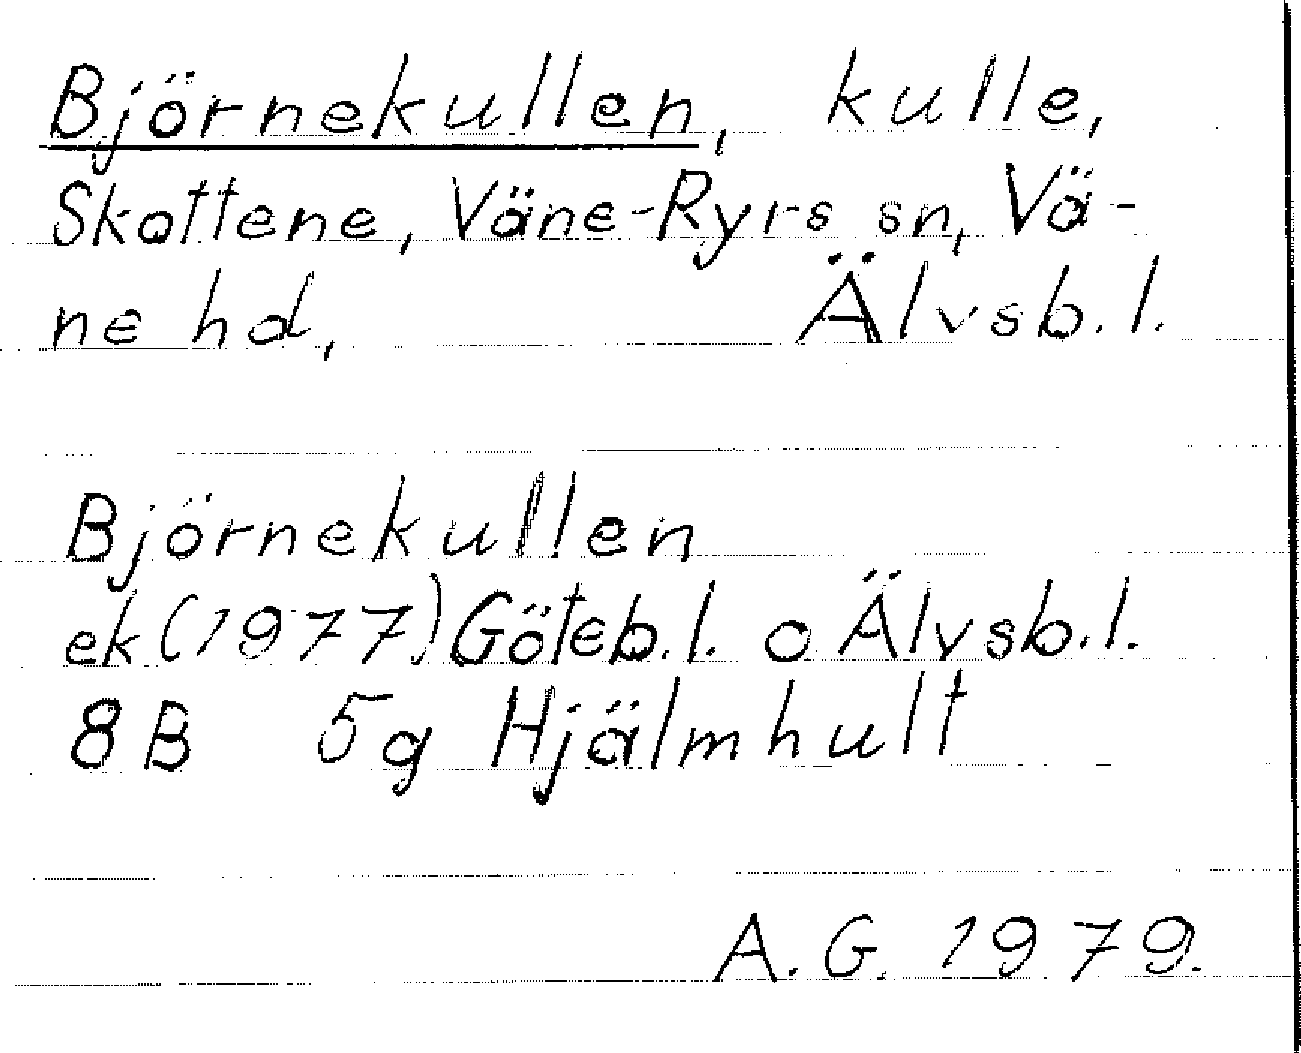 Björnekullen, kulle,
Skottene, Väne-Ryrs sn, Vä-
ne hd, Älvsb.l.
Björnekullen
ek(1977)Göteb.l. o Älvsb.l.
8B 5g Hjälmhult
A.G. 1979.